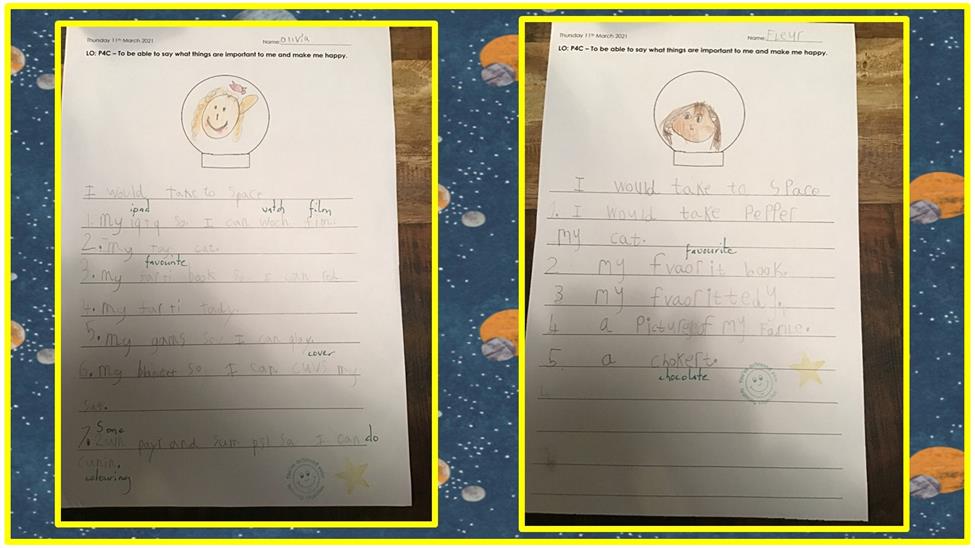 Thursday 11th March 2021 Name: Olivia
LO: P4C – To be able to say what things are important to me and make me happy.
I would take to space
ipad watch film
1. My ipiq so I can woch fim.
2. My cat.
favourite
3. My book so I can red
4. My farti tady.
5. My gams so I can play.
cover
6. My so I can cuvs my
sat.
Some
7. and sum psl sa I can do
colouring
Thursday 11th March 2021 Name: Fleur
LO: P4C – To be able to say what things are important to me and make me happy.
I would take to space
1. I would take Pepper
my cat.
favourite
2 my fvaorit book.
3 my fvaorit tedy.
4 a Picture of my famle.
5. a chokert.
chocolate